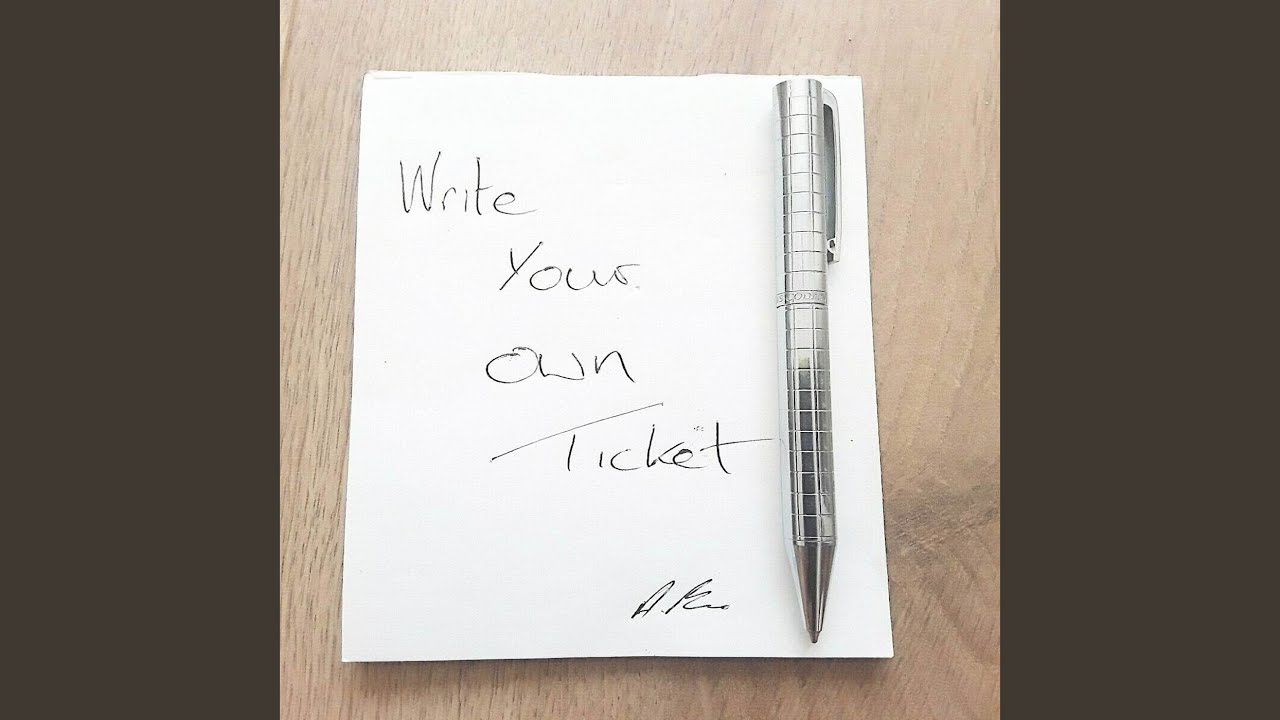 Write
Your
Own
Ticket